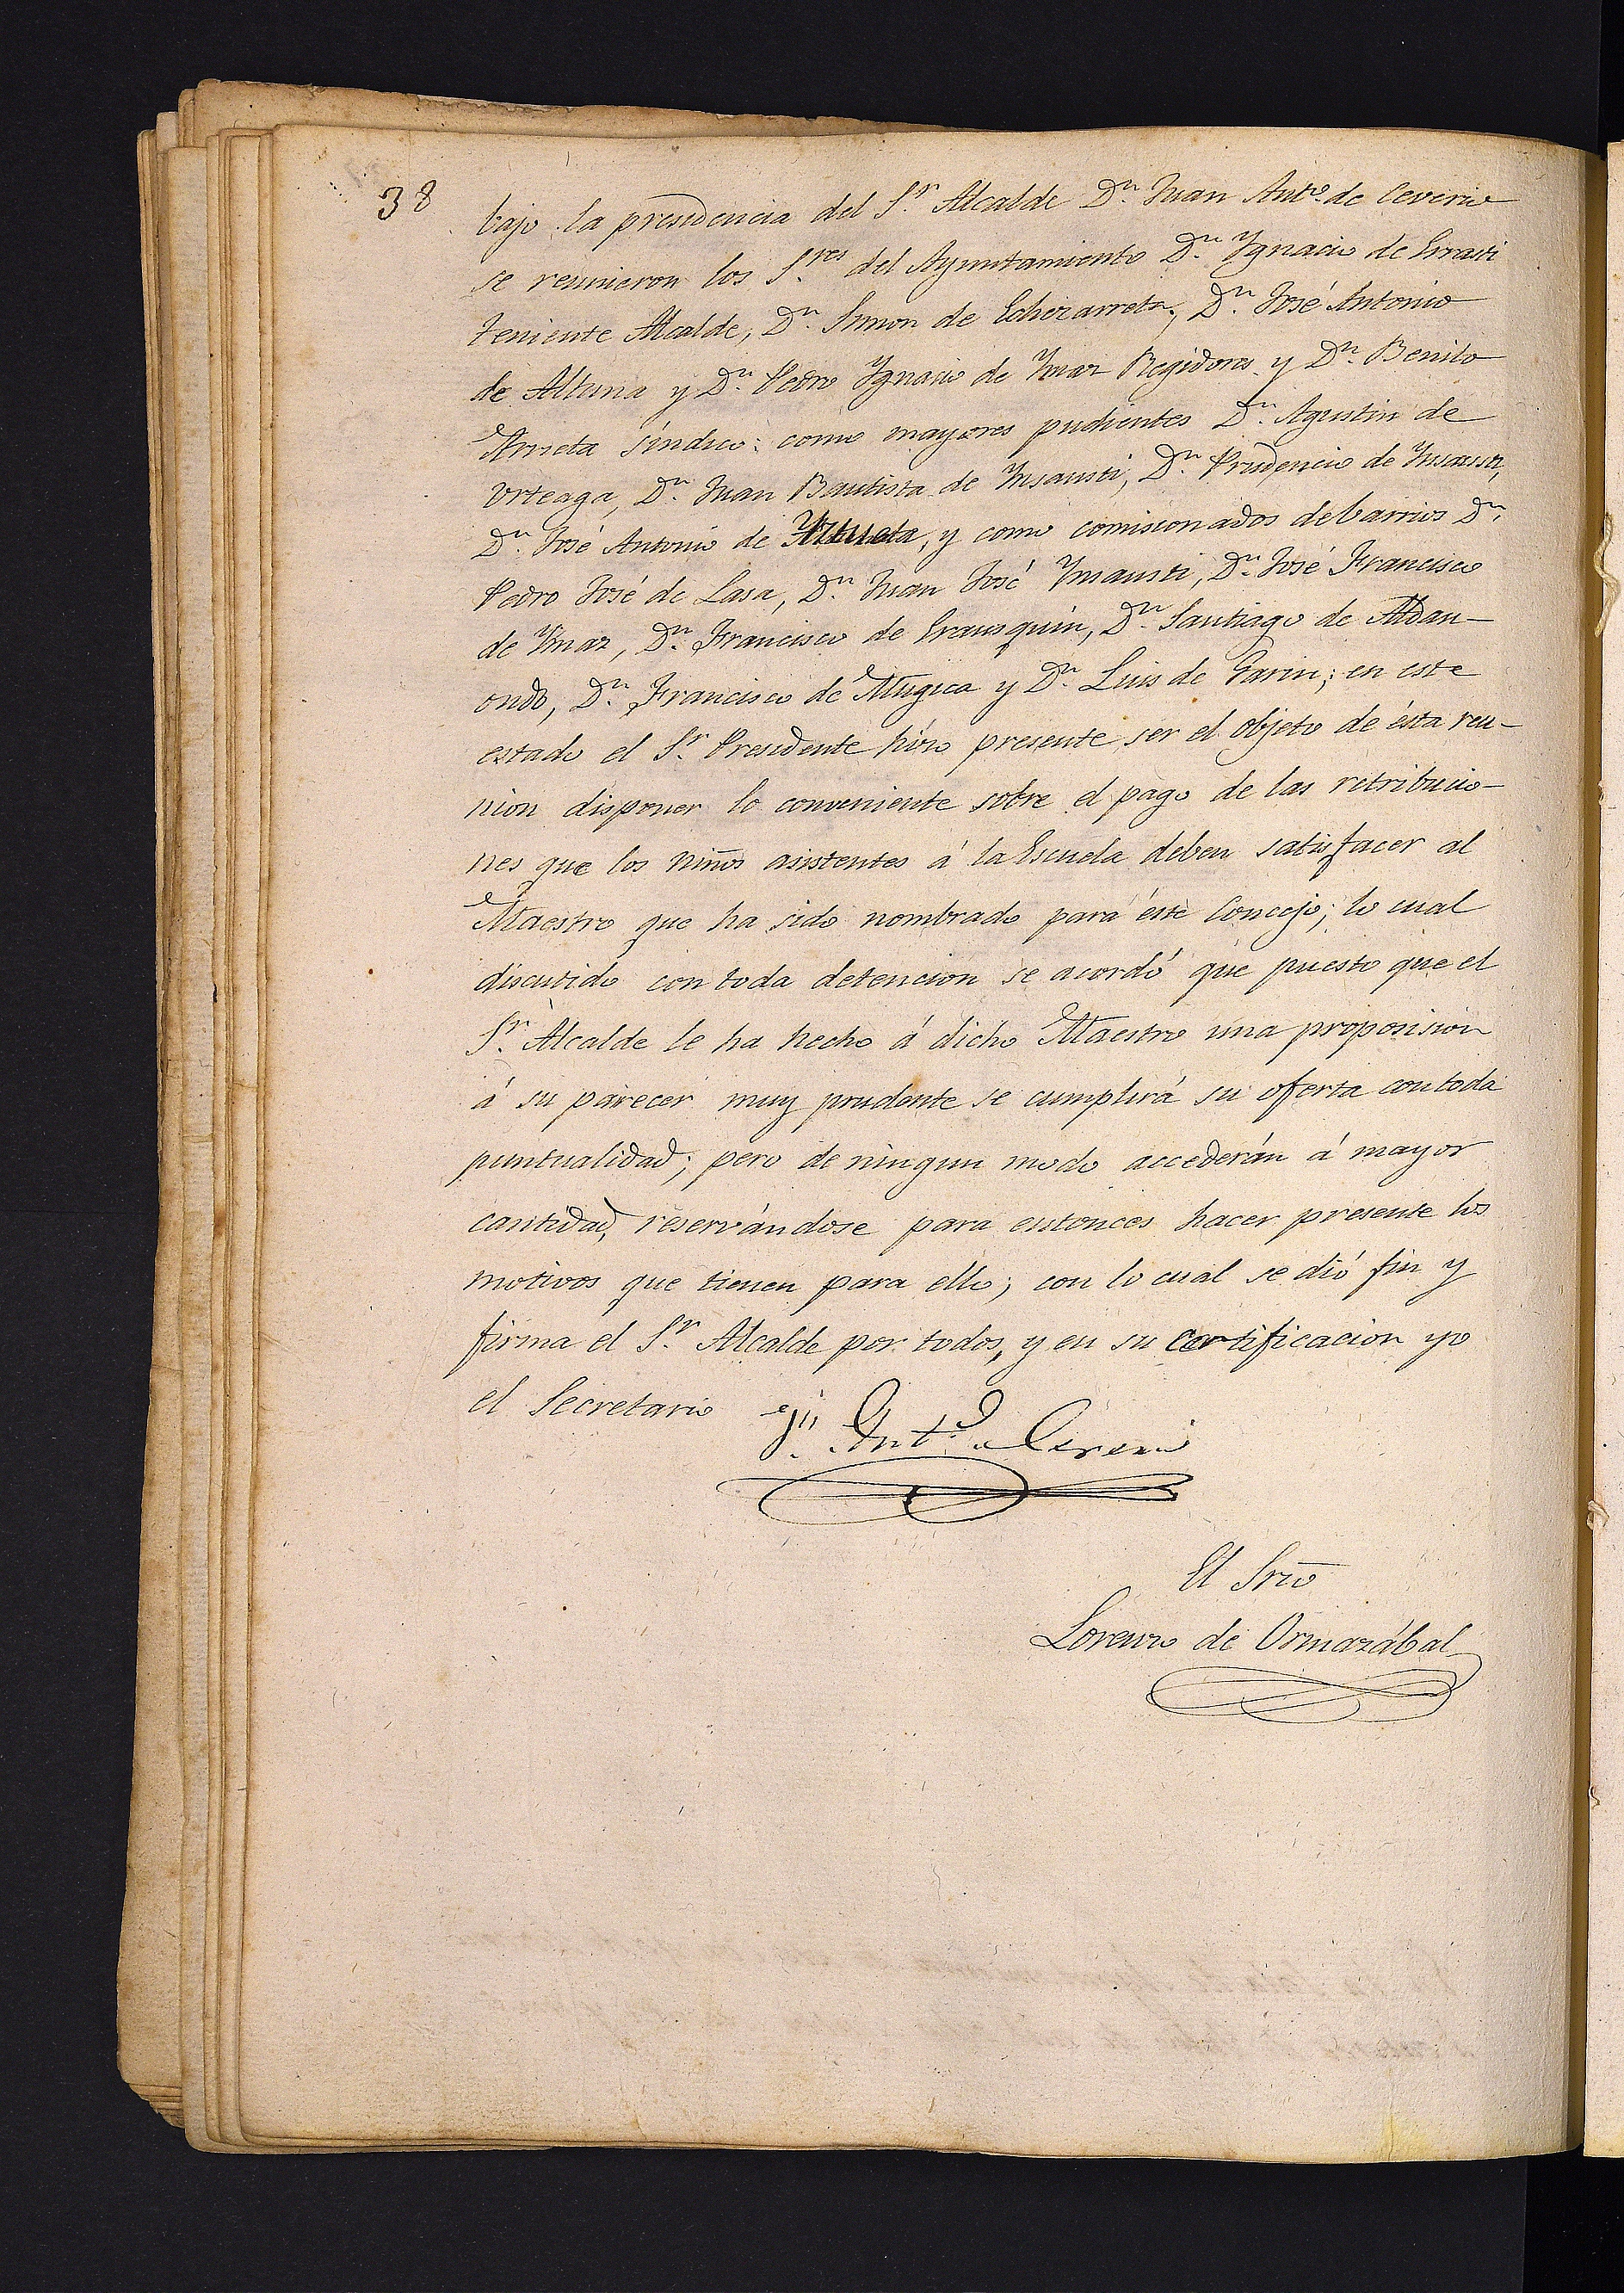 38
bajo la presidencia del S.r Alcalde D.n Juan Ant.o de Ceverio
se reunieron los S.res del Ayuntamiento D.n Ygnacio de Errasti
teniente Alcalde, D.n Simon de Echezarreta, D.n José Antonio
de Altuna y D.n Pedro Ygnacio de Ymaz Regidores y D.n Benito
Arrieta síndico: como mayores pudientes D.n Agustin de
Urteaga, D.n Juan Bautista de Insausti, D.n Prudencio de Insausti,
D.n José Antonio de Yztueta, y como comisionados de barrios D.n
Pedro José de Lasa, D.n Juan José Insausti, D.n José Francisco
de Ymaz, D.n Francisco de Erausquin, D.n Santiago de Aldan-
ondo, D.n Francisco de Mugica y D.n Luis de Garin; en este
estado el S.r Presidente hízo presente ser el objeto de ésta reu-
nion disponer lo conveniente sobre el pago de las retribucio-
nes que los niños asistentes á la Escuela deben satisfacer al
Maestro que ha sido nombrado para éste Concejo; lo cual
discutido con toda detencion se acordó que puesto que el
S.r Alcalde le ha hecho á dicho Maestro una proposision
á su parecer muy prudente se cumplirá su oferta con toda
puntualidad; pero de ningun modo accederán á mayor
cantidad, reservándose para entonces hacer presente los
motivos que tienen para ello; con lo cual se dió fin y
firma el S.r Alcalde por todos, y en su certificacion yo
el Secretario
J.n Ant.o Ceverio
El Srio
Lorenzo de Ormazábal